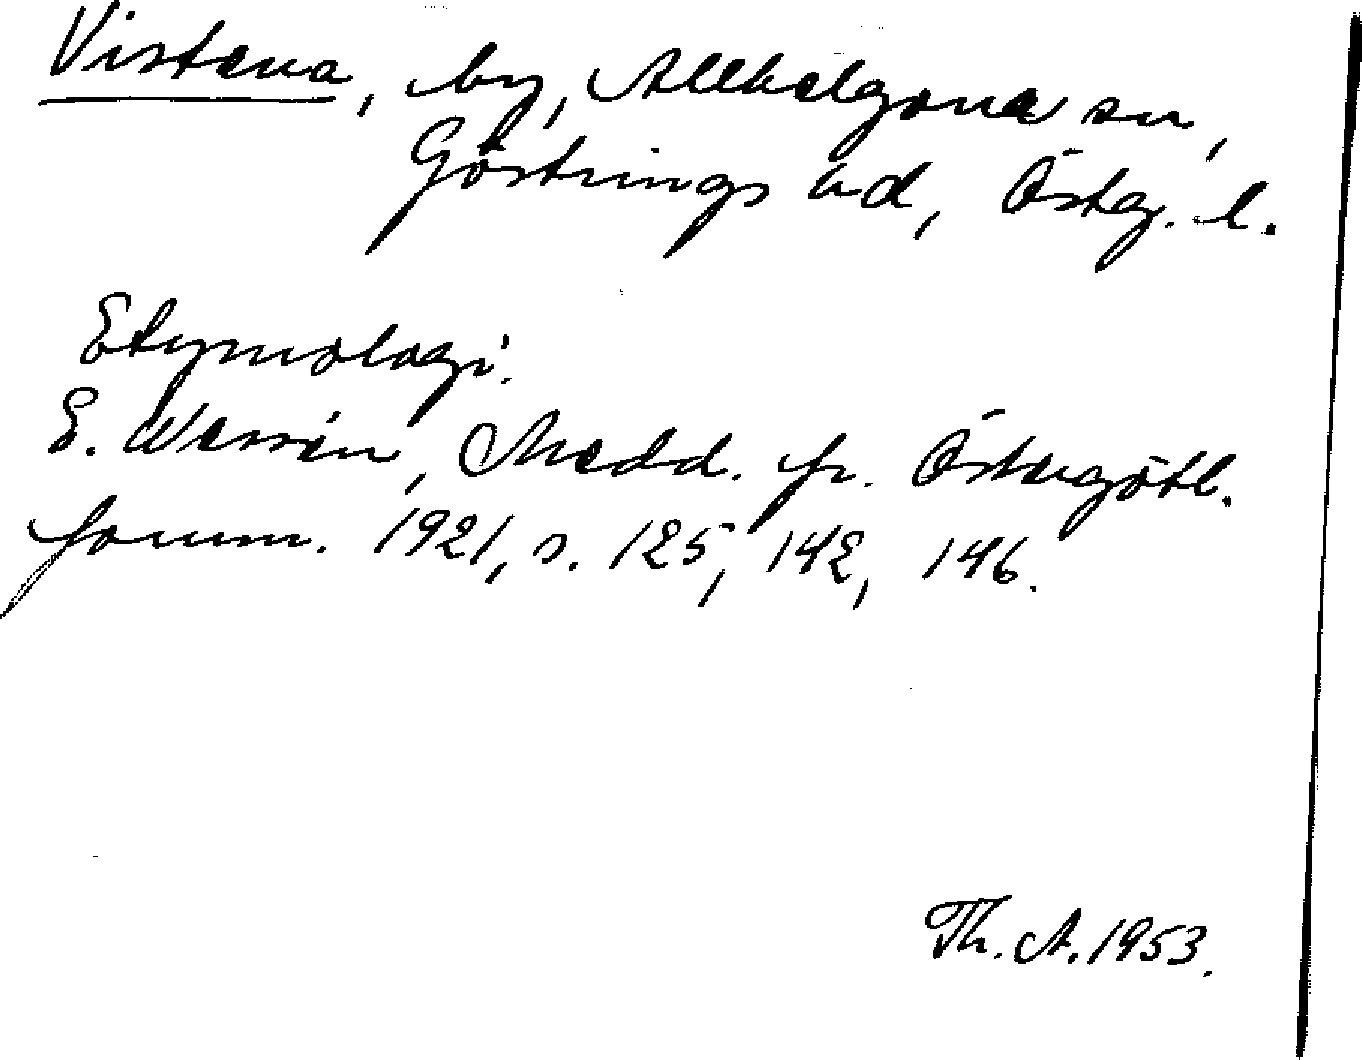 Vistena, by, Allhelgona sn,
Göstrings hd, Östg. l.
Etymologi.
E. Wessén, Medd. fr. Östergötl.
fornm. 1921, s. 125, 142, 146.
Th. A. 1953.